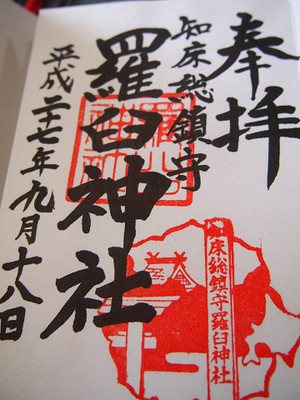 奉拝
知床総鎮守
羅臼神社
平成二十七年九月十八日
知床総鎮守羅臼神社